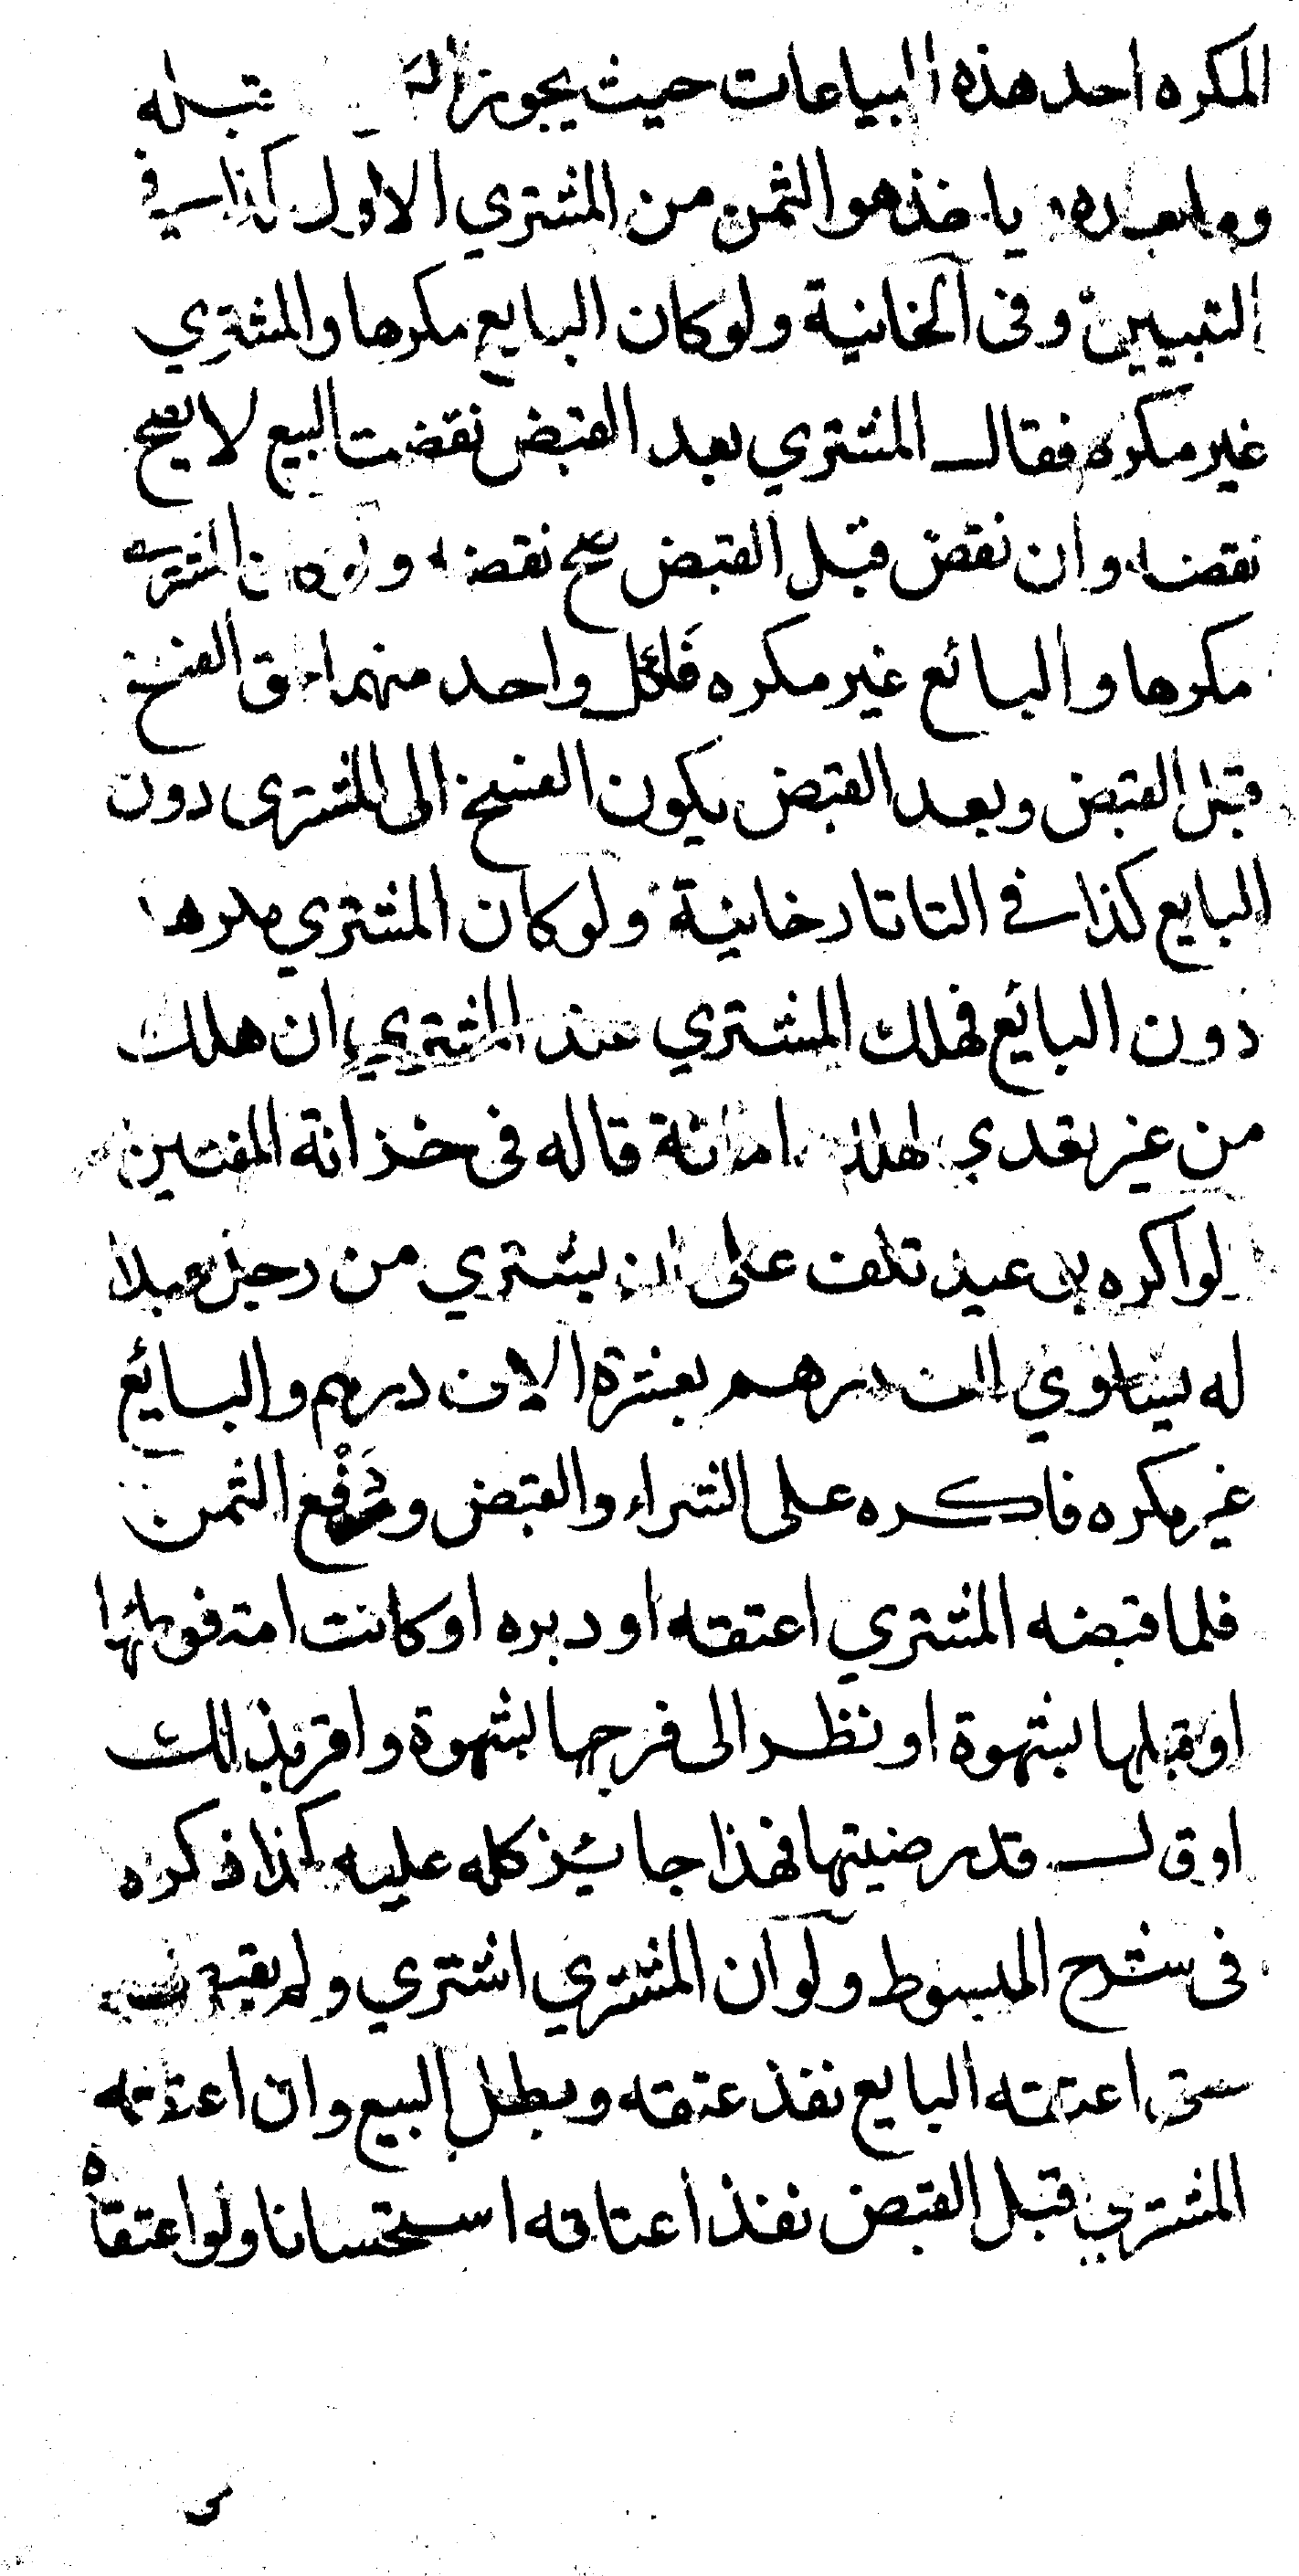 المكره احد هذه البياعات حيث يجوز قبله
وما بعده ياخذ هو الثمن من المشتري الاول كذا في
التبيين وفى الخانية ولو كان البايع مكرها والمشتري
غير مكره فقال المشتري بعد القبض نقضت البيع لا يصح
نقضه وان نقض قبل القبض صح نقضه ولو كان المشترى
مكرها والبائع غير مكره فلكل واحد منهما حق الفسخ
قبل القبض وبعد القبض يكون الفسخ الى المشترى دون
البايع كذا في التاتارخانية ولو كان المشتري مكرها
دون البائع فهلك المشتري عند المشتري ان هلك
من غير تعدي امانة قاله فى خزانة المفتين
لو اكره بوعيد تلف على ان يشتري من رجل عبدا
له يساوي الف درهم بعشرة الاف درهم والبائع
غير مكره فاكره على الشراء والقبض ودفع الثمن
فلما قبضه المشتري اعتقه او دبره او كانت امة فوطئها
او قبلها بشهوة او نظر الى فرجها بشهوة واقر بذلك
او قال قد رضيتها فهذا جائز كله عليه كذا ذكره
فى شرح المبسوط ولو ان المشتري اشتري ولم يقبضه
حتى اعتقه البايع نفذ عتقه وبطل البيع وان اعتقه
المشتري قبل القبض نفذ اعتاقه استحسانا ولو اعتقاه